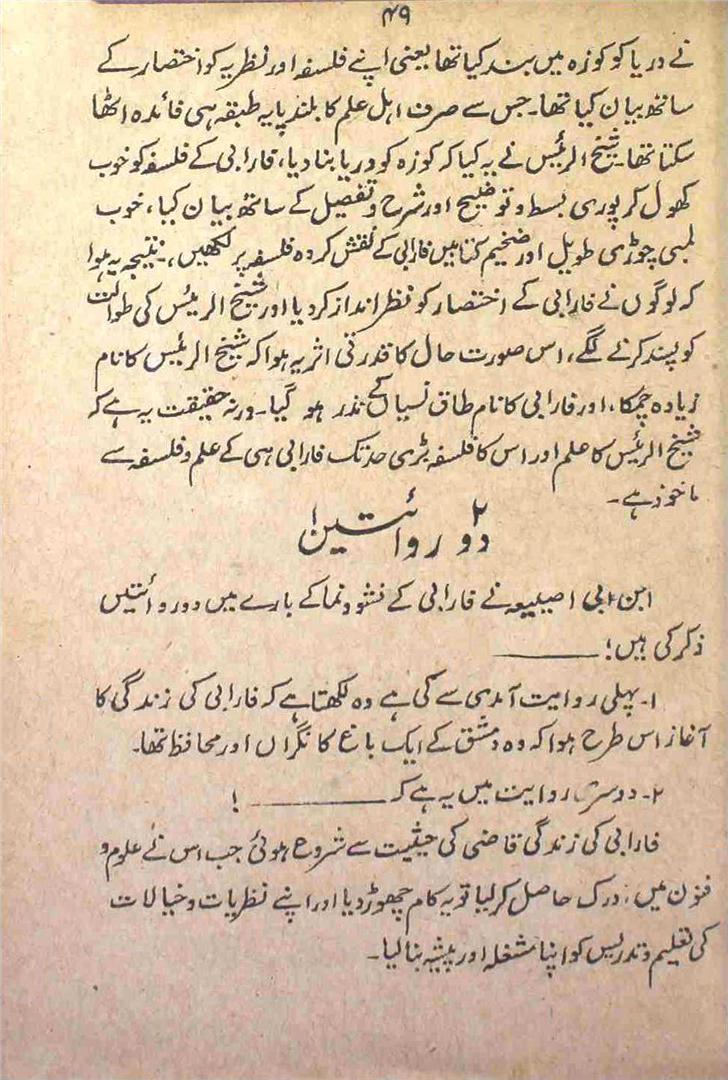 ۴۹
نے دریا کو کوزہ میں بند کیا تھا یعنی اپنے فلسفہ اور نظریہ کو اختصار کے
ساتھ بیان کیا تھا۔ جس سے صرف اہل علم کا بلند پایہ طبقہ ہی فائدہ اٹھا
سکتا تھا۔ شیخ الرئیس نے یہ کیا کہ کوزہ کو دریا بنا دیا، فارابی کے فلسفہ کو خوب
کھول کر پوری بسط و توضیح اور شرح و تفصیل کے ساتھ بیان کیا، خوب
لمبی چوڑی طویل اور ضخیم کتابیں فارابی کے نقش کردہ فلسفہ پر لکھیں، نتیجہ یہ ہوا
کہ لوگوں نے فارابی کے اختصار کو نظر انداز کر دیا اور شیخ الرئیس کی طوالت
کو پسند کرنے لگے، اس صورت حال کا قدرتی اثر یہ ہوا کہ شیخ الرئیس کا نام
زیادہ چمکا، اور فارابی کا نام طاق نسیاں کی نذر ہو گیا۔ ورنہ حقیقت یہ ہے کہ
شیخ الرئیس کا علم اور اس کا فلسفہ بڑی حد تک فارابی ہی کے علم و فلسفہ سے
ماخوذ ہے۔
دو روائتیں!
ابن ابی اصیبیعہ نے فارابی کے نشو و نما کے بارے میں دو روائتیں
ذکر کی ہیں؛ ـــــــــ
۱۔ پہلی روایت آمدی سے کی ہے وہ لکھتا ہے کہ فارابی کی زندگی کا
آغاز اس طرح ہوا کہ وہ دمشق کے ایک باغ کا نگراں اور محافظ تھا۔
۲۔ دوسری روایت میں یہ ہے کہ ـــــــــ !
فارابی کی زندگی قاضی کی حیثیت سے شروع ہوئی جب اس نے علوم و
فنون میں درک حاصل کر لیا تو یہ کام چھوڑ دیا اور اپنے نظریات و خیالات
کی تعلیم و تدریس کو اپنا مشغلہ اور پیشہ بنا لیا۔